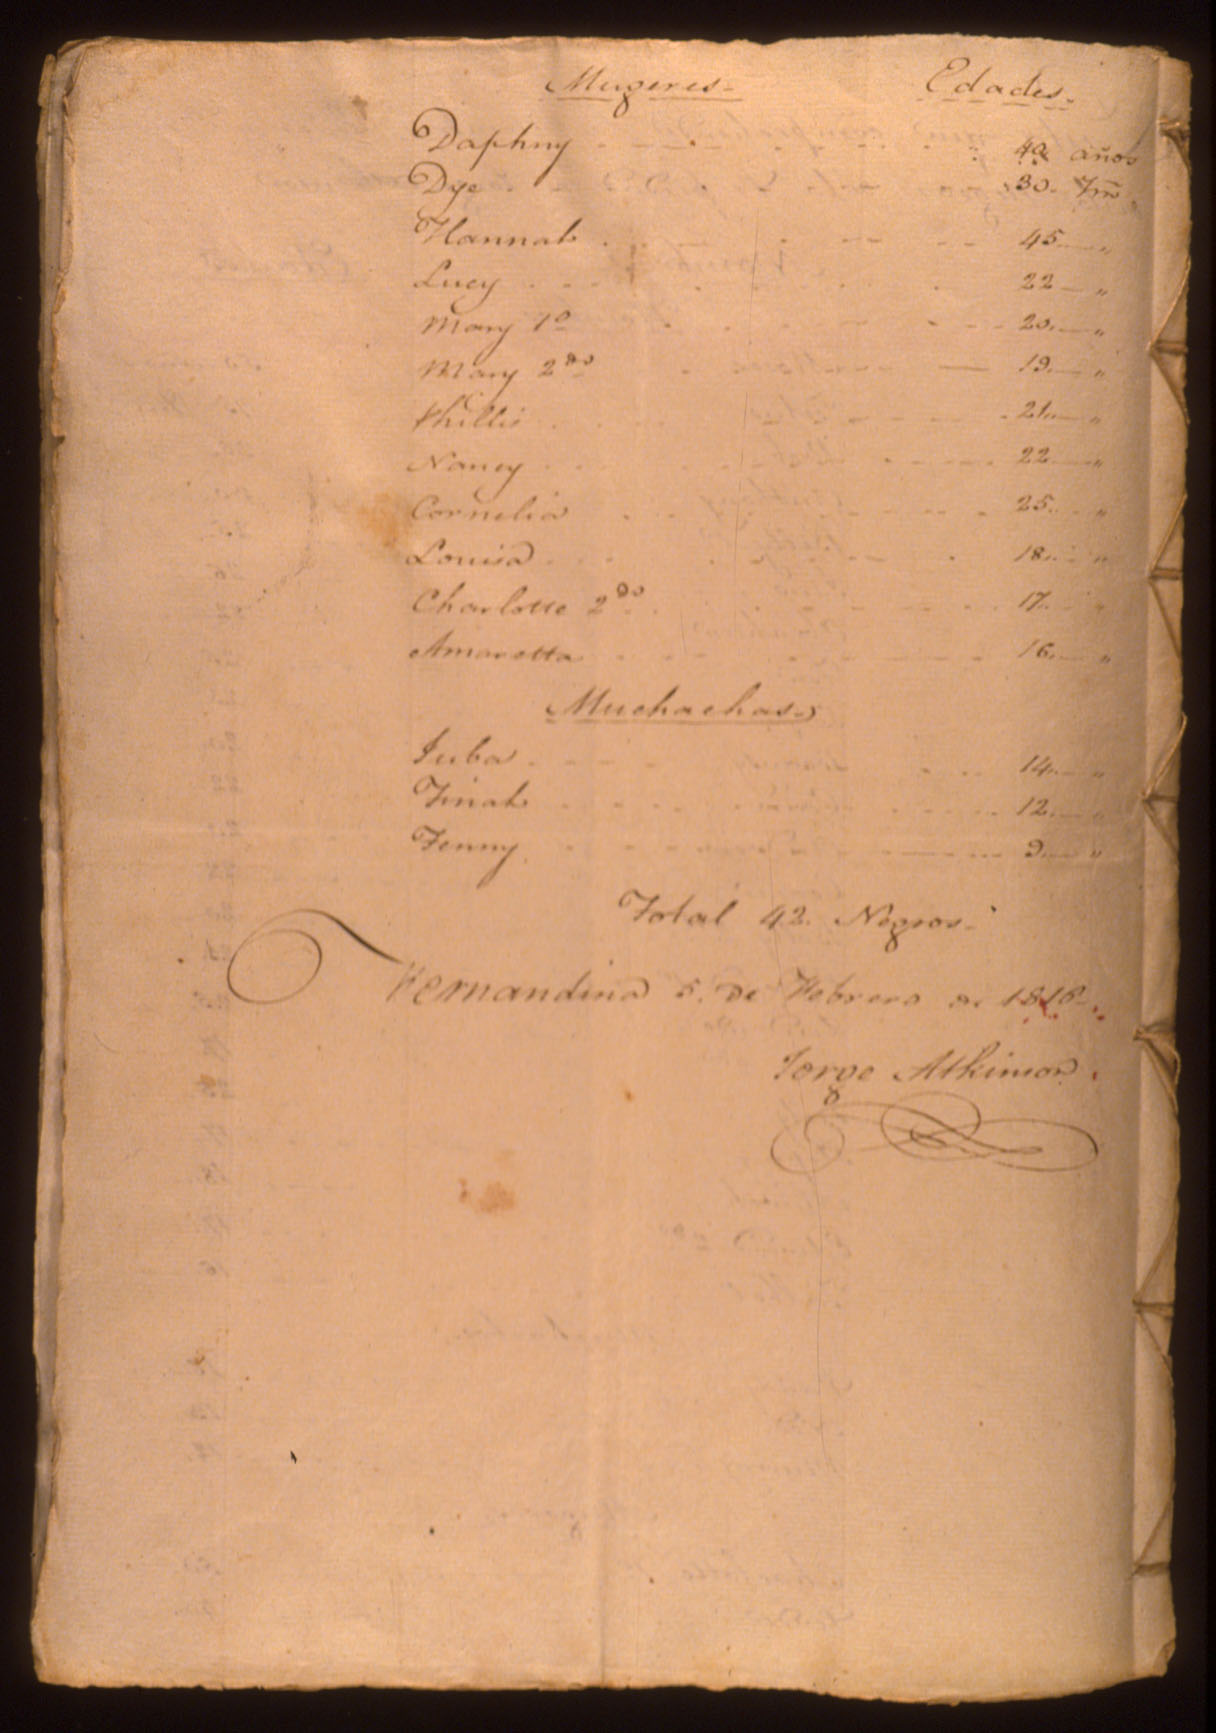 Mugeres.. Edades..
Daphny . . . . . . . 40 años
Dye . . . . . . . 30. Ym̃
Hannah . . . . . . . 45 — "
Lucy . . . . . . . 22 — "
Mary 1ª . . . . . . . 20. — "
Mary 2ᵈᵃ . . . . . . . 19. — "
Phillis . . . . . . . 21. — "
Nancy . . . . . . . 22 — "
Cornelia . . . . . . . 25. . "
Louisa . . . . . . . 18. . "
Charlotte 2ᵈᵃ . . . . . . . 17. . "
Amaretta . . . . . . . 16. — "
Muchachas..
Juba . . . . . . . 14. — "
Tinah . . . . . . . 12. — "
Fenny . . . . . . . 9. — "
Total 42. Negros..
Fernandina 5. de Febrero de 1816..
Jorge Atkinson